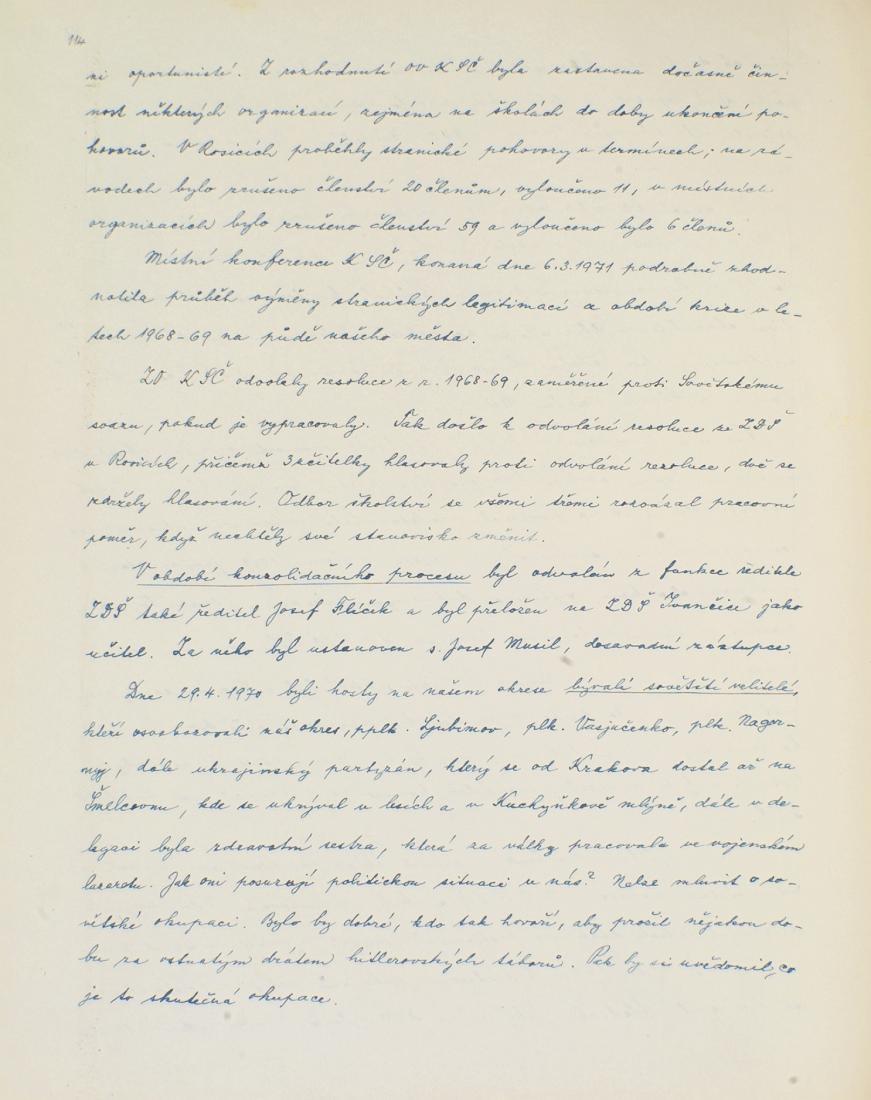 114
ni oportunisté. Z rozhodnutí OV KSČ byla zastavena dočasně čin-
nost některých organizací, zejména na školách do doby ukončení po-
hovorů. V Rosicích proběhly stranické pohovory v termínech; na zá-
vodech bylo zrušeno členství 20 členům, vyloučeno 11, v místních
organizacích bylo zrušeno členství 59 a vyloučeno bylo 6 členů.
Místní konference KSČ, konaná dne 6.3.1971 podrobně zhod-
notila průběh výměny stranických legitimací a období krize v le-
tech 1968-69 na půdě našeho města.
ZO KSČ odvolaly resoluce z r. 1968-69, zaměřené proti Sovětskému
svazu, pokud je vypracovaly. Tak došlo k odvolání resoluce ze ZDŠ
v Rosicích, přičemž 3 učitelky hlasovaly proti odvolání rezoluce, dvě se
zdržely hlasování. Odbor školství se všemi třemi rozvázal pracovní
poměr, když nechtěly své stanovisko změnit.
V období konzolidačního procesu byl odvolán z funkce ředitele
ZDŠ také ředitel Josef Flíček a byl přeložen na ZDŠ Ivančice jako
učitel. Za něho byl ustanoven s. Josef Musil, dosavadní zástupce.
Dne 29.4.1970 byli hosty na našem okrese bývalí sovětští velitelé,
kteří osvobozovali náš okres, pplk. Ljubimov, plk. Vasjačenko, plk. Nagor-
nyj, dále ukrajinský partyzán, který se od Krakova dostal až na
Šmelcovnu, kde se ukrýval v lesích a v Kuchyňkově mlýně, dále v de-
legaci byla zdravotní sestra, která za války pracovala ve vojenském
lazaretu. Jak oni posuzují politickou situaci u nás? Nelze mluvit o so-
větské okupaci. Bylo by dobré, kdo tak hovoří, aby prožil nějakou do-
bu za ostnatým drátem hitlerovských táborů. Pak by si uvědomil, co
je to skutečná okupace.